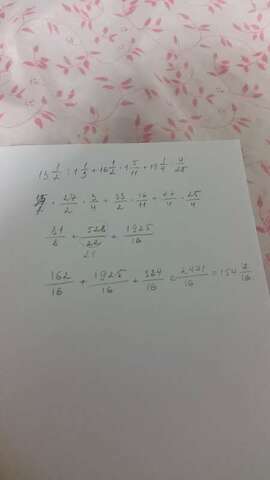 13 1/2 : 1 1/3 + 16 1/2 · 1 5/11 + 19 1/4 : 4/25
27/2 · 3/4 + 33/2 · 16/11 + 77/4 · 25/4
81/8 + 528/22 + 1925/16
162/16 + 1925/16 + 384/16 = 2471/16 = 154 7/16